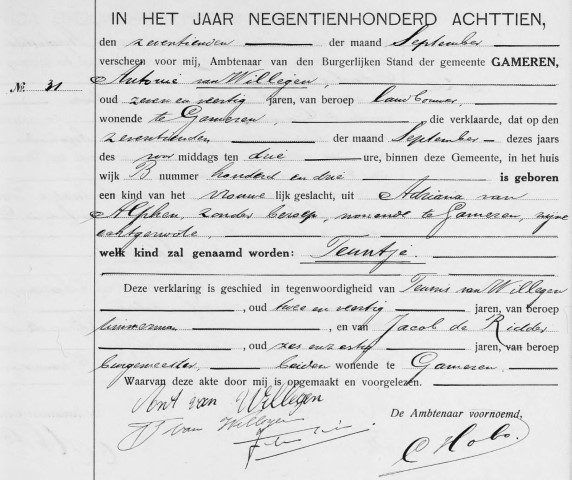 IN HET JAAR NEGENTIENHONDERD ACHTTIEN,
den zeventienden der maand September
verscheen voor mij, Ambtenaar van den Burgerlijken Stand der gemeente GAMEREN,
No. 31 Antonie van Willegen,
oud zeven en veertig jaren, van beroep landbouwer,
wonende te Gameren, die verklaarde, dat op den
zeventienden der maand September dezes jaars
des voor middags ten drie ure, binnen deze Gemeente, in het huis
wijk B nummer honderd en drie is geboren
een kind van het vrouwe lijk geslacht, uit Adriana van
Alphen, zonder beroep, wonende te Gameren, zijne
echtgenoote.
welk kind zal genaamd worden: Teuntje.
Deze verklaring is geschied in tegenwoordigheid van Teunis van Willegen
, oud twee en veertig jaren, van beroep
timmerman, en van Jacob de Ridder
, oud zes en zestig jaren, van beroep
burgemeester, beiden wonende te Gameren.
Waarvan deze akte door mij is opgemaakt en voorgelezen.
Ant van Willegen
De Ambtenaar voornoemd,
T van Willegen
C Hobo.